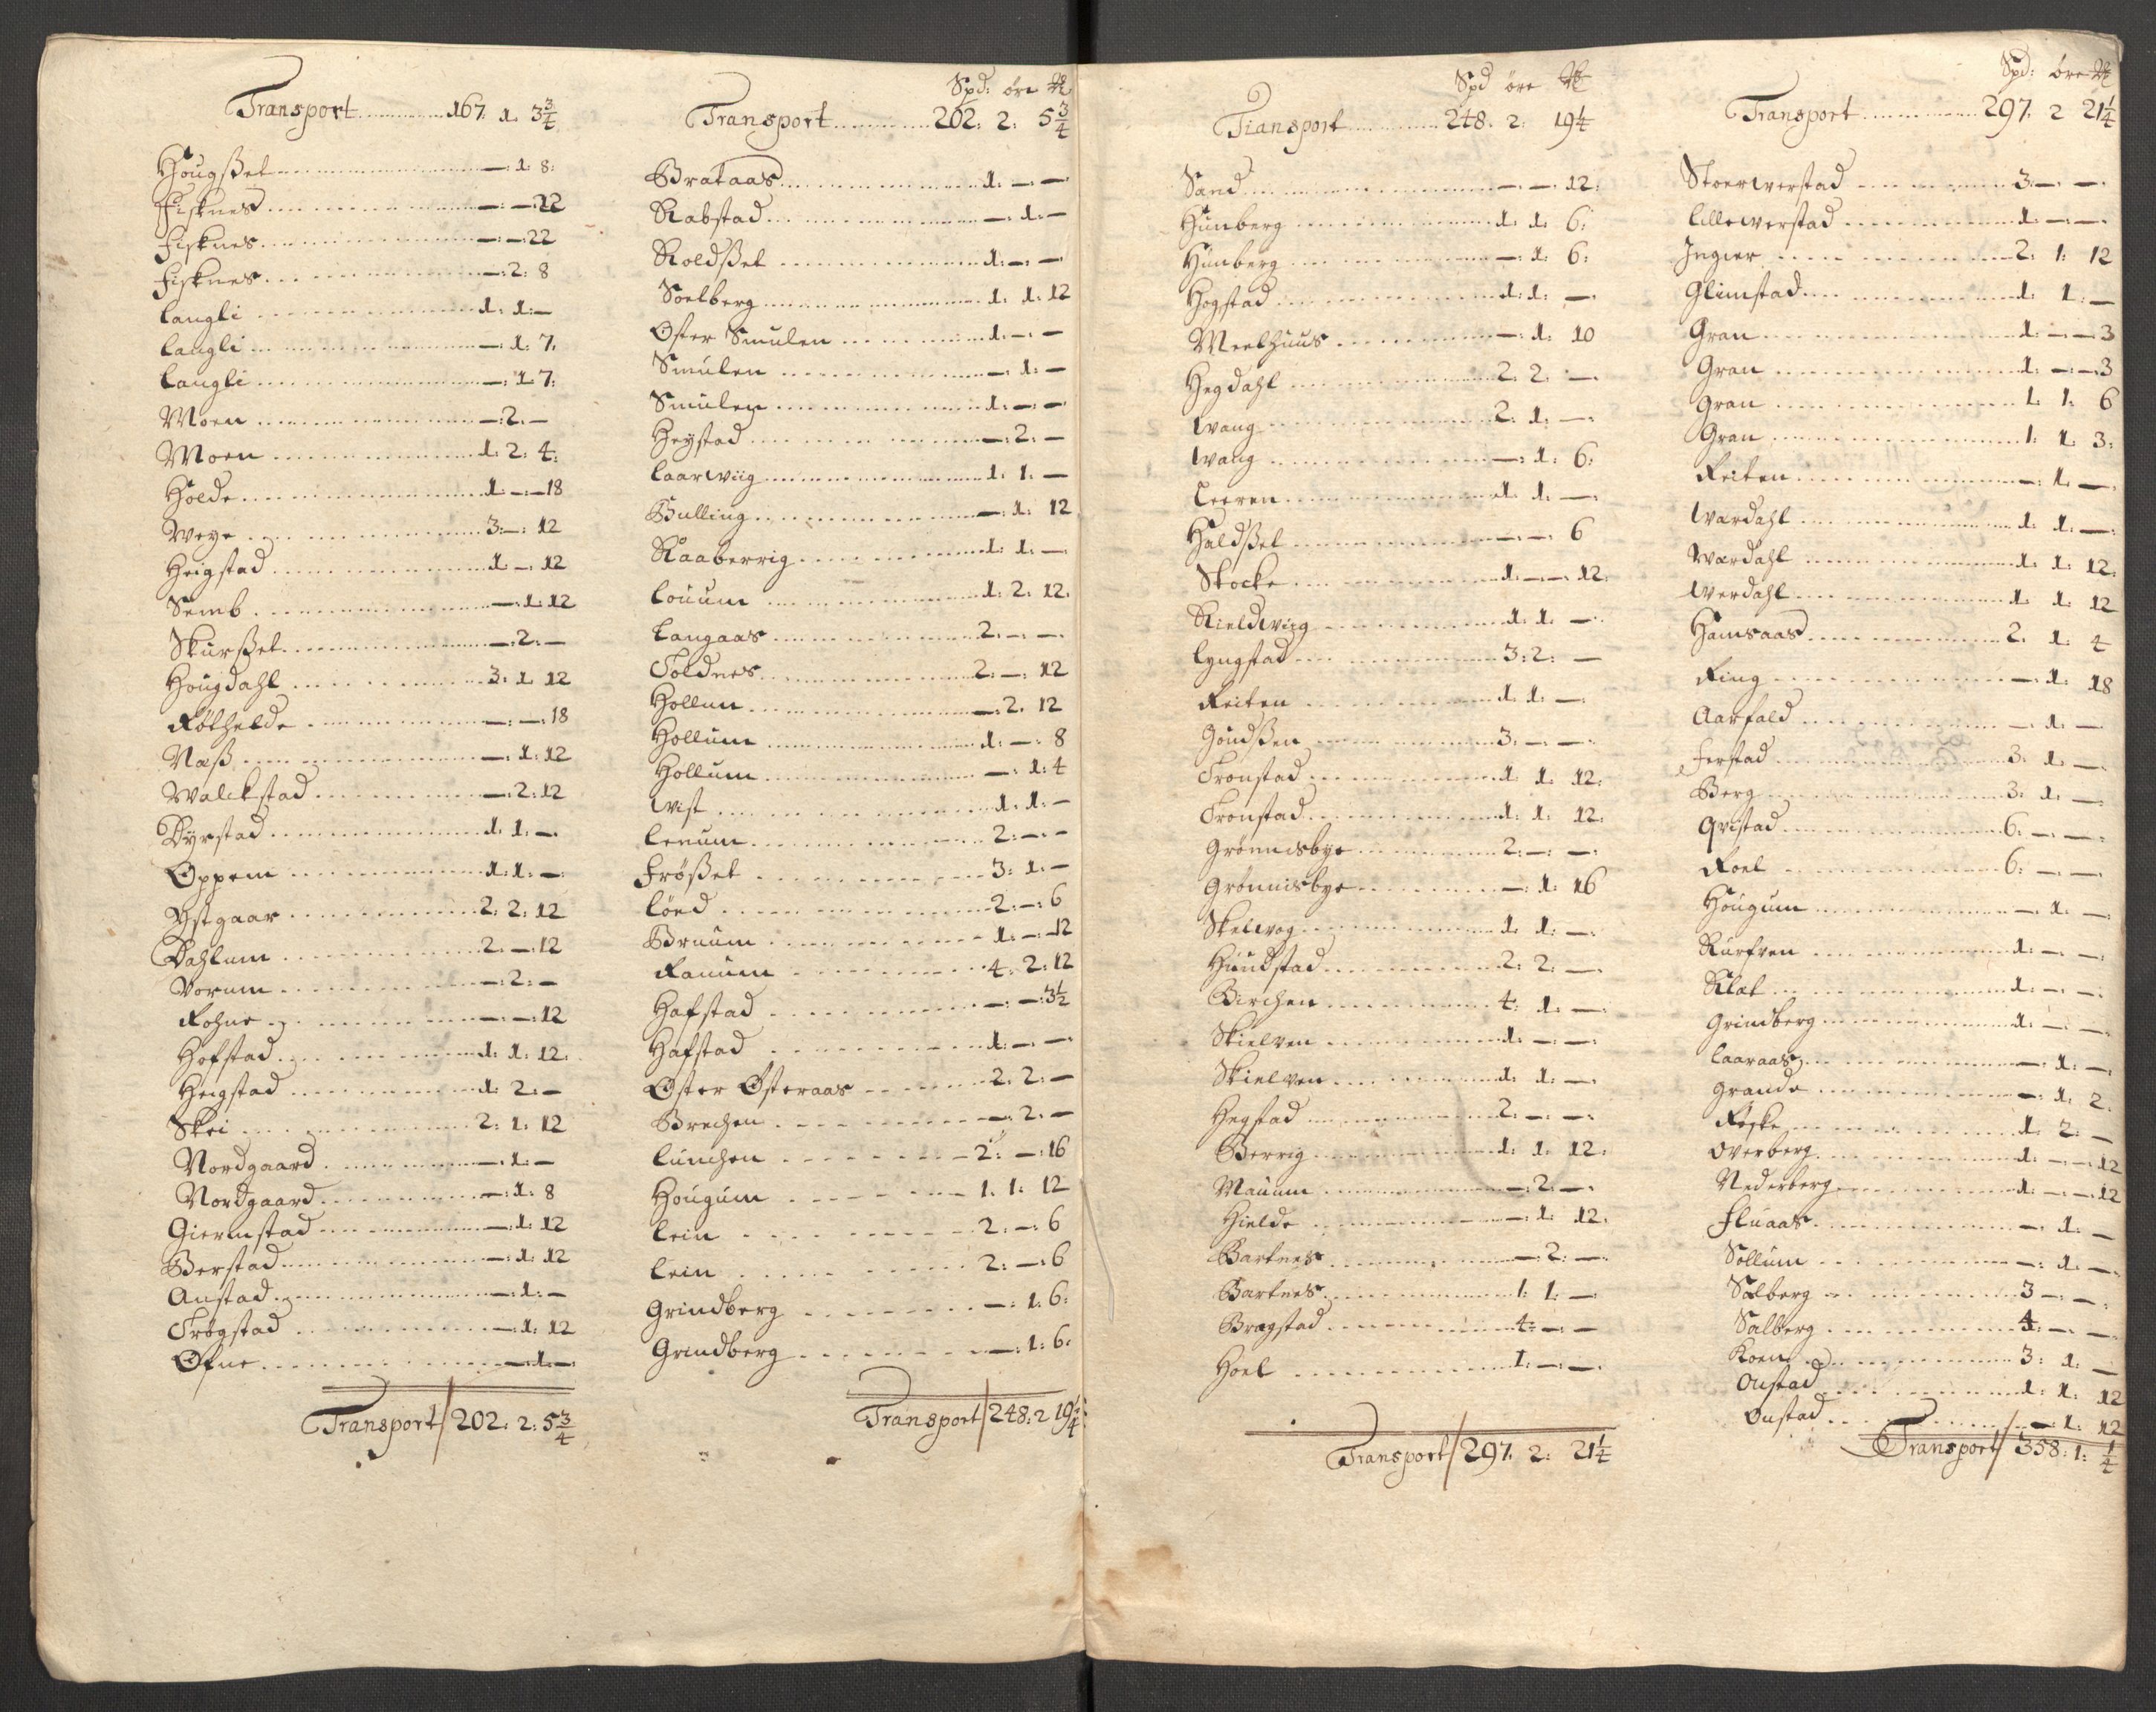 Transport ........... 167. 1. 3 3/4
Hougßet ........... —. 1. 8.
Fisknes ........... —. —. 22
Fisknes ........... —. —. 22
Fisknes ........... —. 2. 8
Langli ........... 1. 1. —
Langli ........... —. 1. 7.
Langli ........... —. 1. 7.
Moen ........... —. 2. —
Moen ........... 1. 2. 4.
Holde ........... 1. —. 18
Weye ........... 3. —. 12
Heigstad ........... 1. —. 12
Semb ........... —. 1. 12
Skurßet ........... —. 2. —
Hougdahl ........... 3. 1. 12
Røthelde ........... —. —. 18
Næß ........... —. 1. 12
Walckstad ........... —. 2. 12
Dyrstad ........... 1. 1. —
Oppem ........... 1. 1. —
Østgaar ........... 2. 2. 12
Dahlum ........... 2. —. 12
Vorum ........... —. 2. —
Rohne ........... —. —. 12
Hofstad ........... 1. 1. 12.
Hegstad ........... 1. 2. —
Skei ........... 2. 1. 12
Nordgaard ........... —. 1. —
Nordgaard ........... —. 1. 8
Giermstad ........... —. 1. 12
Berstad ........... —. 1. 12
Anstad ........... —. 1. —
Trøgstad ........... —. 1. 12
Øfne ........... —. 1. —
Transport 202. 2. 5 3/4
Spd: öre
Transport ........... 202. 2. 5 3/4
Brataas ........... 1. —. —
Rabstad ........... —. 1. —
Roldßet ........... 1. —. —
Soelberg ........... 1. 1. 12
Øster Smulen ........... 1. —. —
Smulen ........... —. 1. —
Smulen ........... 1. —. —
Heystad ........... —. 2. —
Laarwiig ........... 1. 1. —
Bulling ........... —. 1. 12
Raaberrig ........... 1. 1. —
Louum ........... 1. 2. 12.
Langaas ........... 2. —. —
Toldnes ........... 2. —. 12
Hollum ........... —. 2. 12
Hollum ........... 1. —. 8
Hollum ........... —. 1. 4
Wist ........... 1. 1. —
Leeum ........... 2. —. —
Frößet ........... 3. 1. —
Löed ........... 2. —. 6
Bruum ........... 1. —. 12
Ranum ........... 4. 2. 12
Hafstad ........... —. —. 3 1/2
Hafstad ........... 1. —. —
Øster Østeraas ........... 2. 2. —
Brechen ........... —. 2. —
Lunchen ........... 2. —. 16
Hougum ........... 1. 1. 12
Lein ........... 2. —. 6
Lein ........... 2. —. 6
Grindberg ........... —. 1. 6.
Grindberg ........... —. 1. 6.
Transport 248. 2 19 1/4
Spd öre
Transport ........... 248. 2. 19 1/4
Sand ........... —. —. 12.
Hunberg ........... 1. 1. 6.
Hunberg ........... —. 1. 6.
Hogstad ........... 1. 1. —
Meelhuus ........... —. 1. 10
Hegdahl ........... 2. 2. —
Wang ........... 2. 1. —
Wang ........... —. 1. 6.
Leeren ........... 1. 1. —
Haldßet ........... —. —. 6
Stocke ........... 1. —. 12.
Kieldwiig ........... 1. 1. —
Lyngstad ........... 3. 2. —
Reiten ........... 1. 1. —
Goudßen ........... 3. —. —
Tronstad ........... 1. 1. 12.
Tronstad ........... 1. 1. 12.
Grönnisbye ........... 2. —. —
Grönnisbye ........... —. 1. 16
Skelwog ........... 1. 1. —
Hundstad ........... 2. 2. —
Birchen ........... 4. 1. —
Skielven ........... 1. —. —
Skielven ........... 1. 1. —
Hegstad ........... 2. —. —
Berrig ........... 1. 1. 12.
Mauum ........... —. 2. —
Hielde ........... —. 1. 12.
Bartnes ........... —. 2. —
Bartnes ........... 1. 1. —
Bragstad ........... 4. —. —
Hoel ........... 1. —. —
Transport 297. 2. 21 1/4
Spd: öre
Transport ........... 297. 2 21 1/4
Stoerwerstad ........... 3. —. —
Lillewerstad ........... 1. —. —
Ingier ........... 2. 1. 12
Glimstad ........... 1. 1. —
Gran ........... 1. —. 3
Gran ........... 1. —. 3
Gran ........... 1. 1. 6
Gran ........... 1. 1. 3.
Reiten ........... —. 1. —
Wardahl ........... 1. 1. —
Wardahl ........... 1. 1. 12.
Werdahl ........... 1. 1. 12
Hamsaas ........... 2. 1. 4
Ring ........... —. 1. 18
Aarfald ........... —. 1. —
Ferstad ........... 3. 1. —
Berg ........... 3. 1. —
Qvistad ........... 6. —. —
Roel ........... 6. —. —
Hougum ........... —. 1. —
Kurfven ........... 1. —. —
Klæt ........... 1. —. —
Grindberg ........... 1. —. —
Laaraas ........... —. 1. —
Grande ........... —. 1. 2.
Røske ........... 1. 2. —
Overberg ........... 1. —. 12
Nederberg ........... 1. —. 12
Fluaas ........... —. 1. —
Sollum ........... —. 1. —
Salberg ........... 3 —. —
Salberg ........... 4. —. —
Koen ........... 3. 1. —
Onstad ........... 1. 1. 12
Onstad ........... —. 1. 12
Transport 358. 1. 1/4